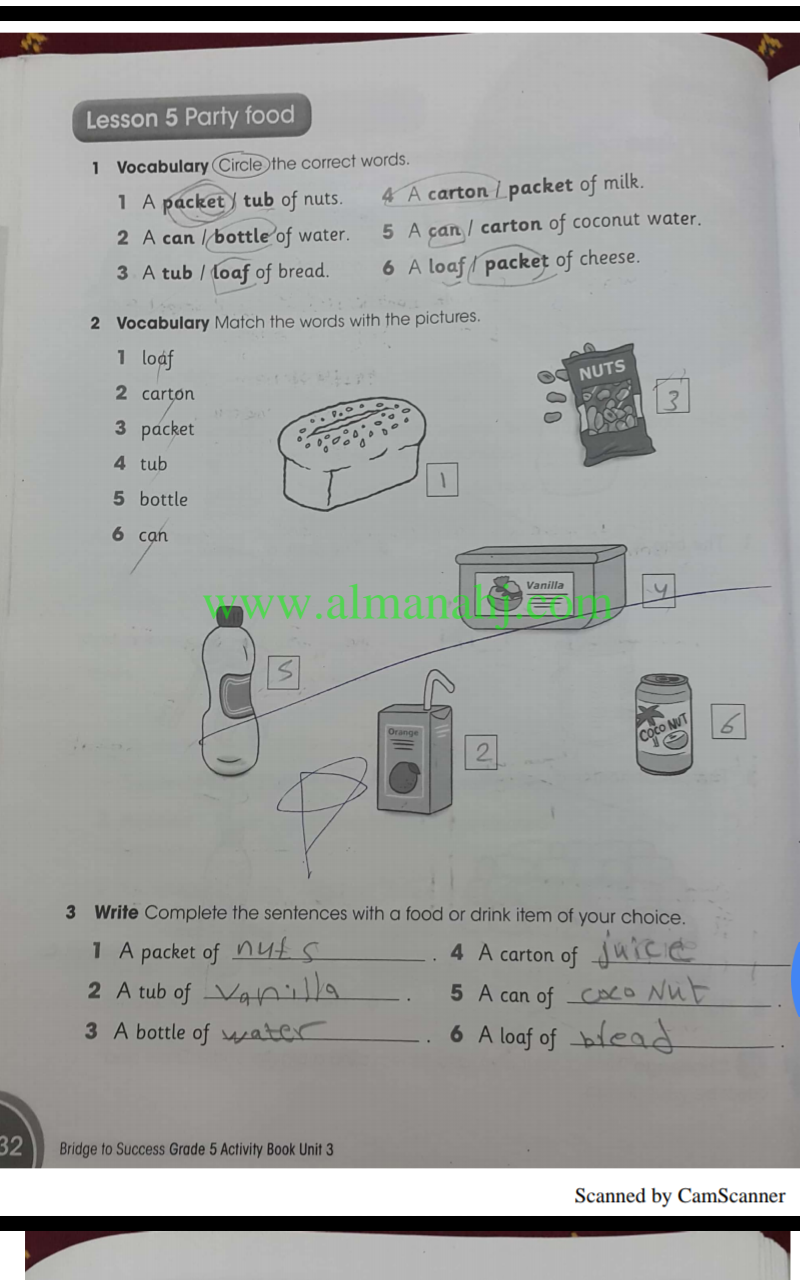 Lesson 5 Party food
1 Vocabulary Circle the correct words.
1 A packet / tub of nuts.
2 A can / bottle of water.
3 A tub / loaf of bread.
4 A carton / packet of milk.
5 A can / carton of coconut water.
6 A loaf / packet of cheese.
2 Vocabulary Match the words with the pictures.
1 loaf
2 carton
3 packet
4 tub
5 bottle
6 can
NUTS
3
1
Vanilla
4
www.almanahj.com
5
Orange
2
COCONUT
6
3 Write Complete the sentences with a food or drink item of your choice.
1 A packet of nuts.
2 A tub of vanilla.
3 A bottle of water.
4 A carton of juice
5 A can of coco Nut.
6 A loaf of bread.
32
Bridge to Success Grade 5 Activity Book Unit 3
Scanned by CamScanner